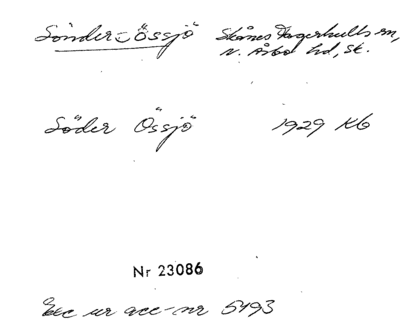 Sönder-Össjö Skånes Fagerhults sn,
N. Åsbo hd, Sk.
Söder Össjö 1929 Kb
Nr 23086
Exc ur acc-nr 5493